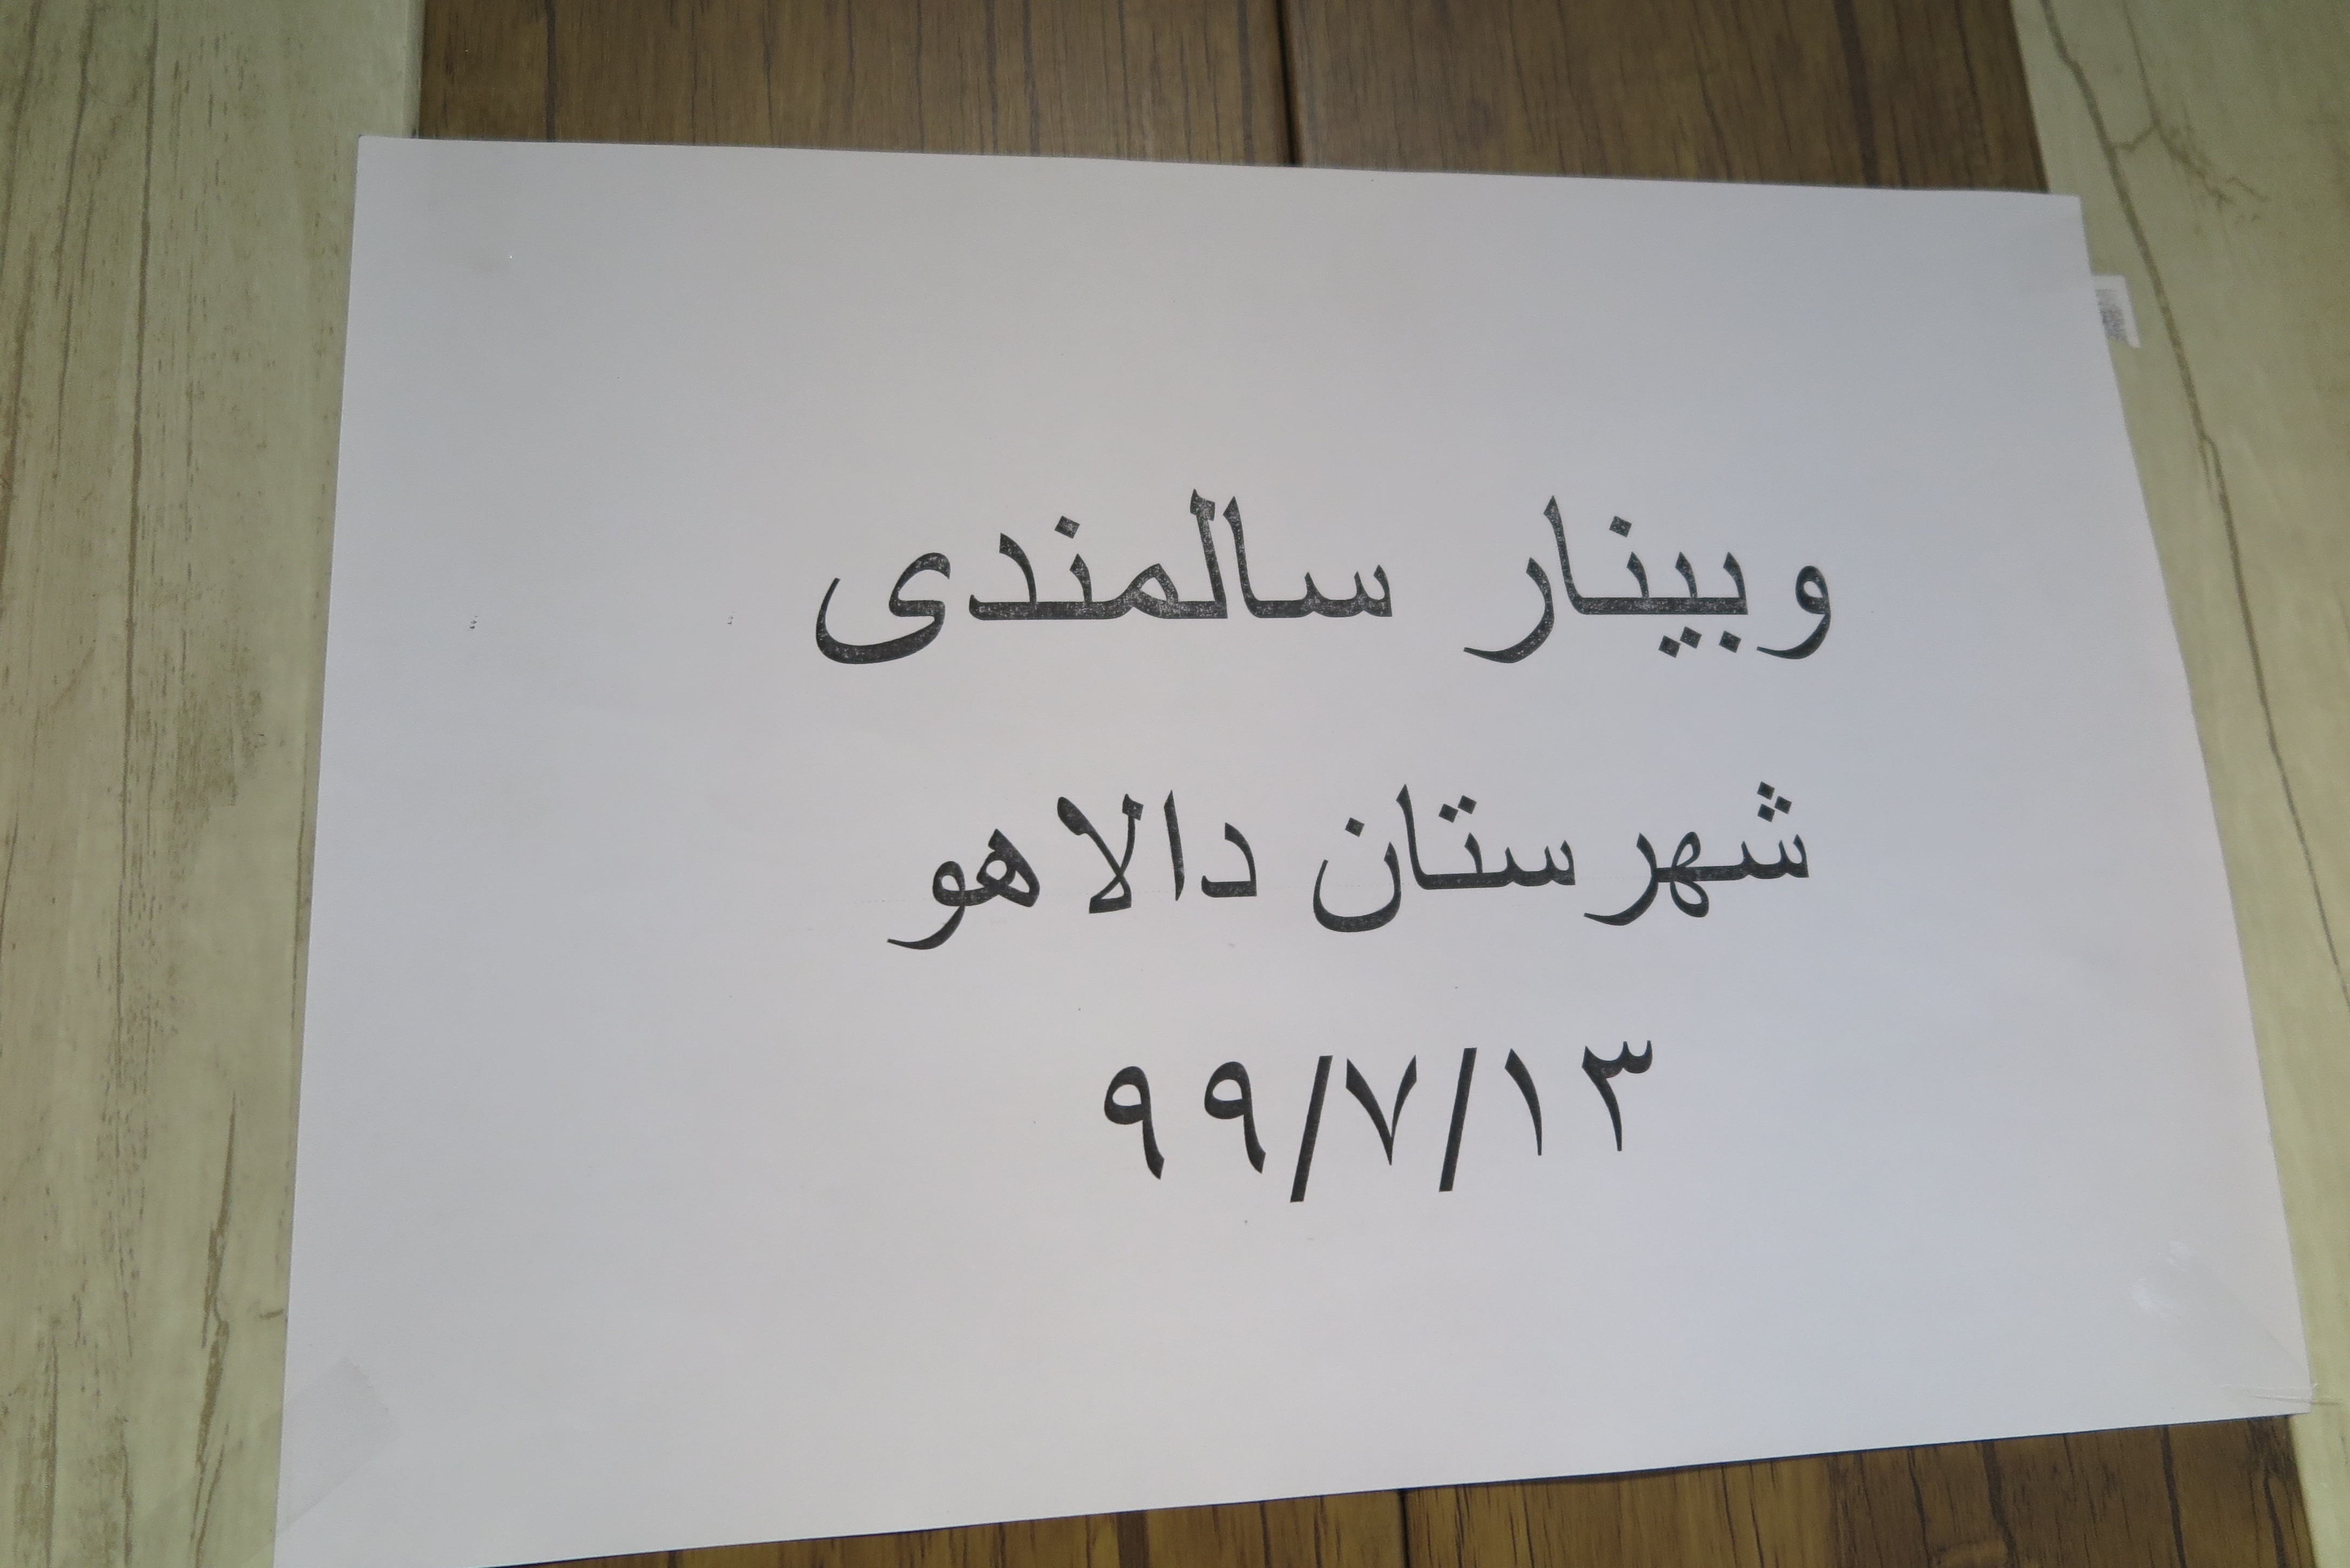 وبینار سالمندی
شهرستان دالاهو
۹۹/۷/۱۳